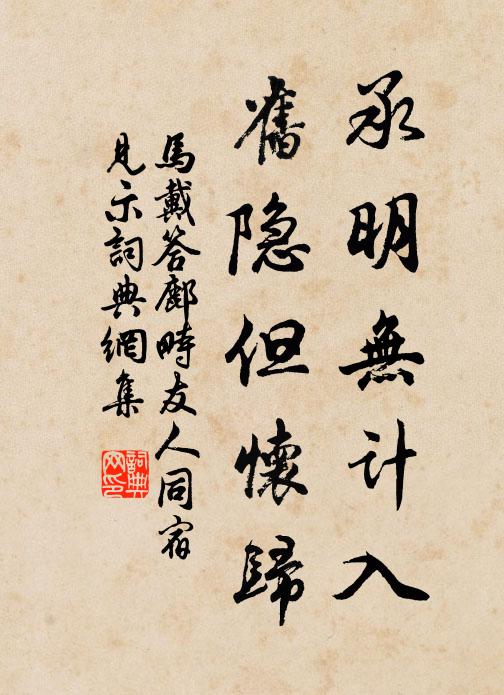 承明無計入
舊隐但懷歸
馬戴答鄜畤友人同宿
見示詞典網集
詞典
网印